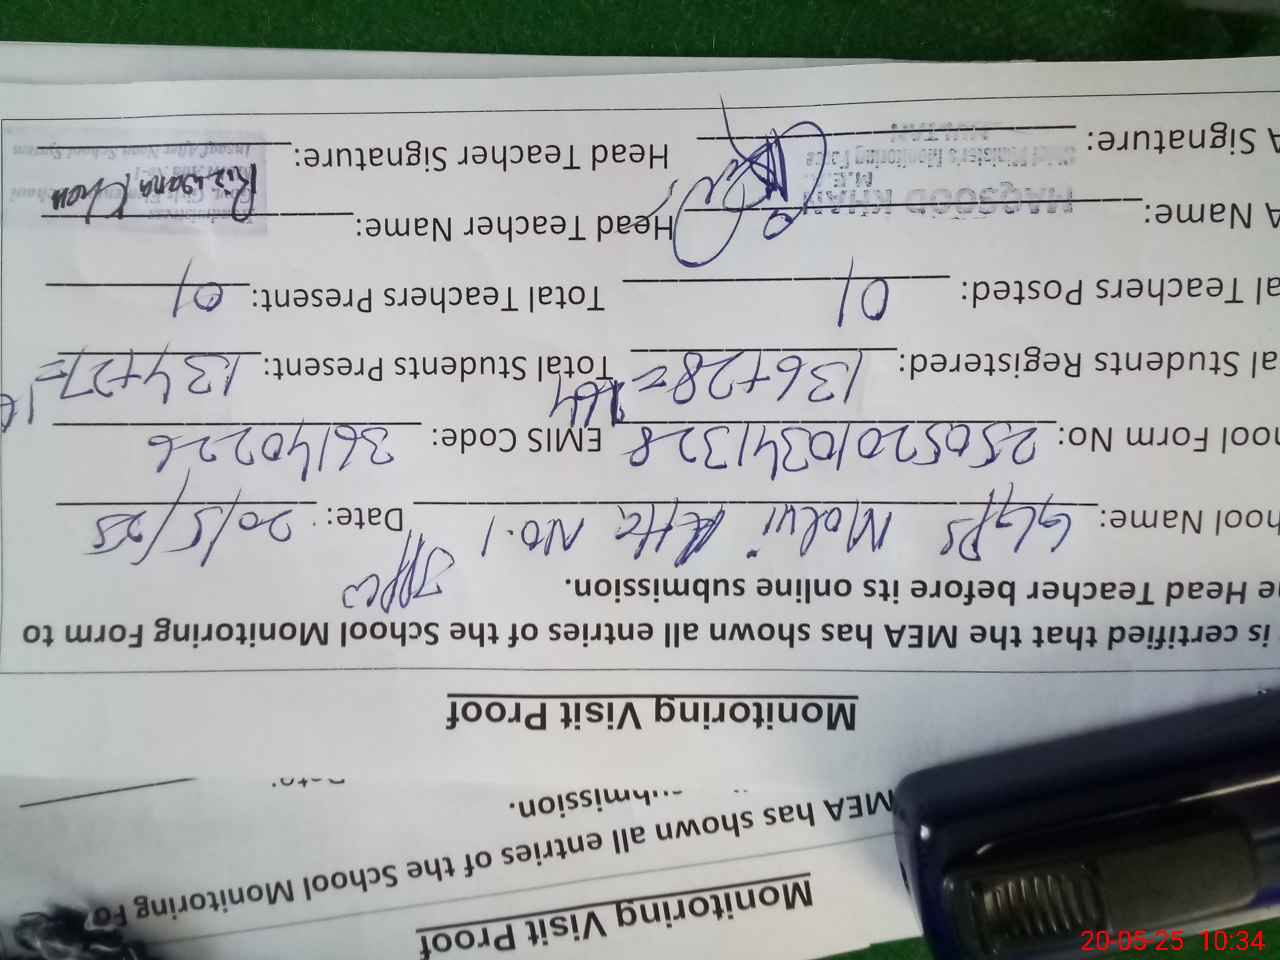 Monitoring Visit Proof
MEA has shown all entries of the School Monitoring Fo
submission.
Monitoring Visit Proof
is certified that the MEA has shown all entries of the School Monitoring Form to
e Head Teacher before its online submission.
hool Name: GGPS Molvi NO.1 Date: 20/5/25
hool Form No: 25052010341328 EMIS Code: 36140226
al Students Registered: 136+28=164 Total Students Present: 134+27=
al Teachers Posted: 01 Total Teachers Present: 01
A Name: MAQSOOD KHAN Head Teacher Name:
M.E.A
Chief Minister's Monitoring Force
A Signature: Head Teacher Signature:
MULTAN
Insaf After Noon School System
20-05-25 10:34